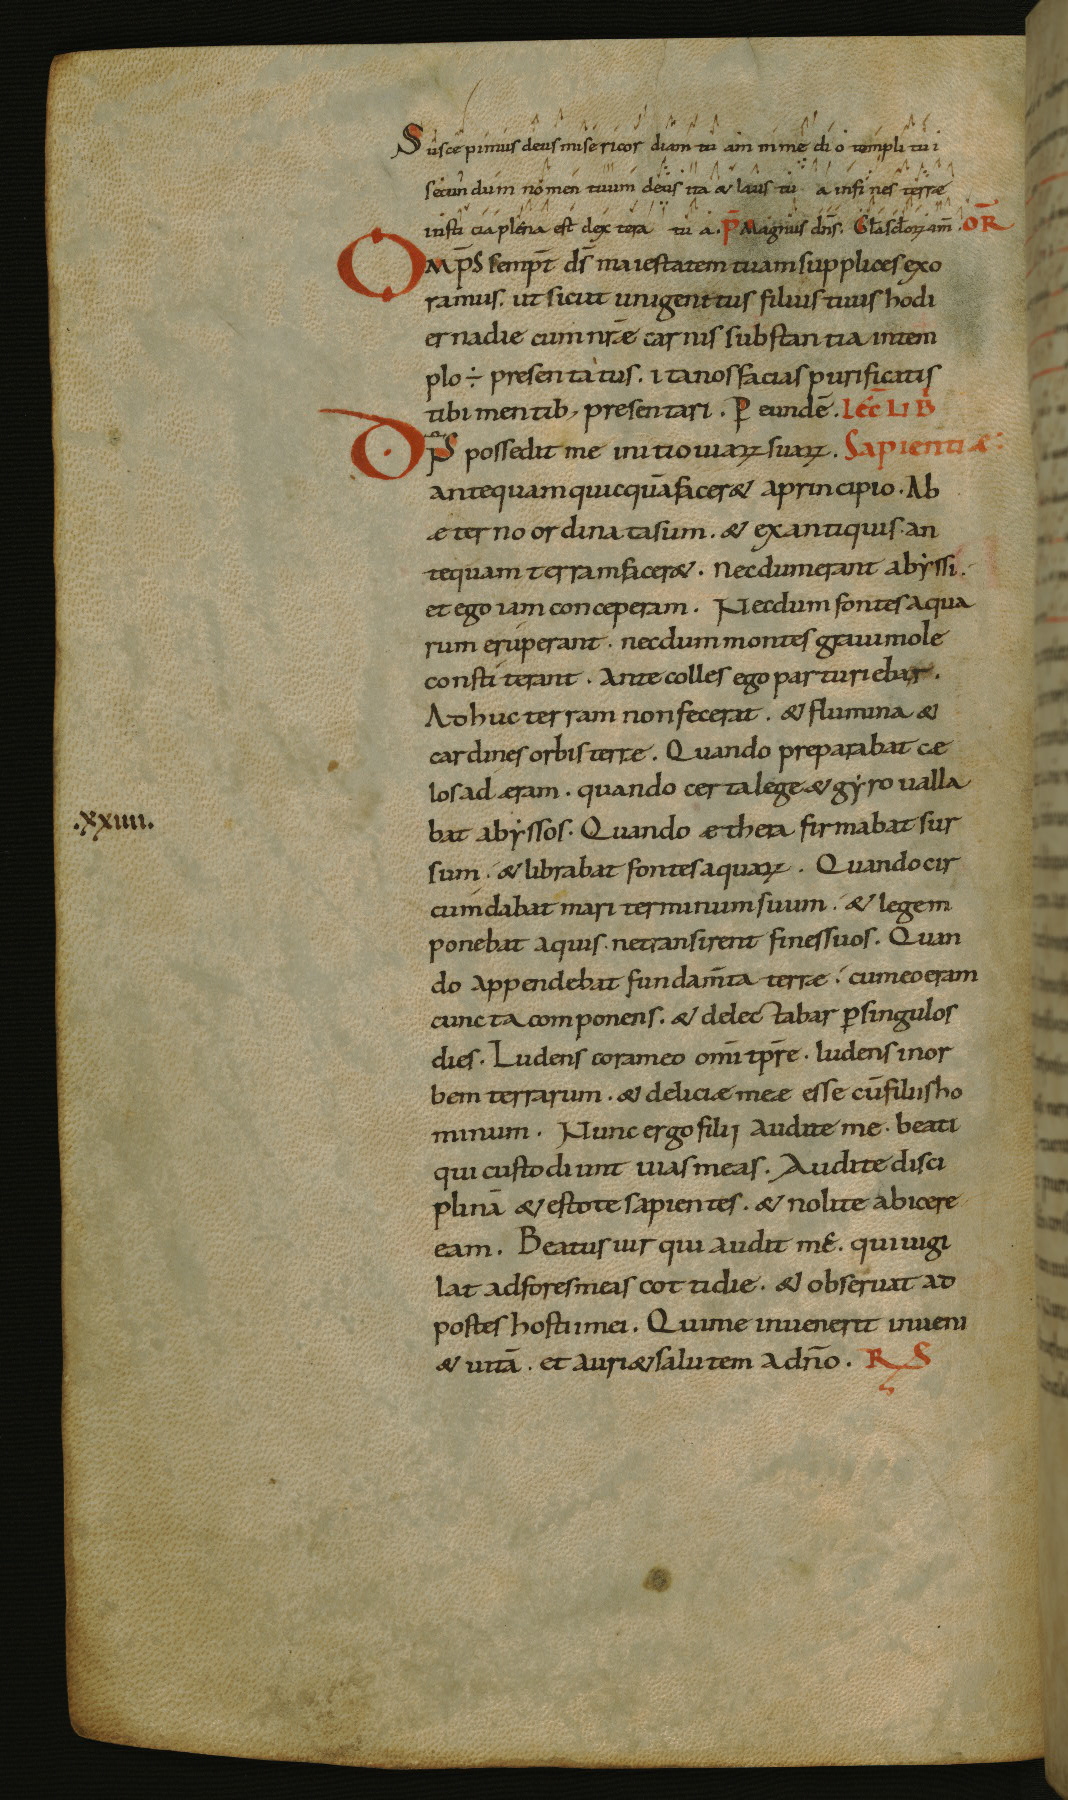 Suscepimus deus misericor diam tu am in me di o templi tu i
secundum nomen tuum deus ita & laus tu a in fi nes terrae
iusti cia plena est dex tera tu a. P̄ Magnus dn̄s. Gła sclorꝝ am̄. OR̄
OMP̄S sempt̄ ds̄ maiestatem tuam supplices exo
ramus. ut sicut unigenitus filius tuus hodi
erna die cum nr̄ę carnis substantia in tem
plo ÷ presentatus. ita nos facias purificatis
tibi mentib; presentari. P eundē. Lec̄ LIB̄
DN̄S possedit me initio uiarꝝ suarꝝ. Sapientiae:
antequam quicquā facer& a principio. Ab
aeterno ordinata sum. & ex antiquis. an
tequam terram facer&. necdum erant abyssi.
et ego iam conceperam. Necdum fontes aqua
rum eruperant. necdum montes graui mole
constiterant. Ante colles ego parturiebar.
Adhuc terram non fecerat. & flumina &
cardines orbis terrae. Quando preparabat cae
los aderam. quando certa lege & gyro ualla
.xxiiii.
bat abyssos. Quando aethera firmabat sur
sum. & librabat fontes aquarꝝ. Quando cir
cumdabat mari terminum suum. & legem
ponebat aquis. ne transirent fines suos. Quan
do appendebat fundam̄ta terrae. cum eo eram
cuncta componens. & delectabar ꝑ singulos
dies. Ludens coram eo om̄i tp̄re. ludens in or
bem terrarum. & deliciae meae esse cū filiis ho
minum. Nunc ergo filij audite me. beati
qui custodiunt uias meas. Audite disci
plinā & estote sapientes. & nolite abicere
eam. Beatus uir qui audit me. qui uigi
lat ad fores meas cottidie. & obseruat ad
postes hostii mei. Qui me inuenerit inueni
& uitā. et auri& salutem a dn̄o. R S